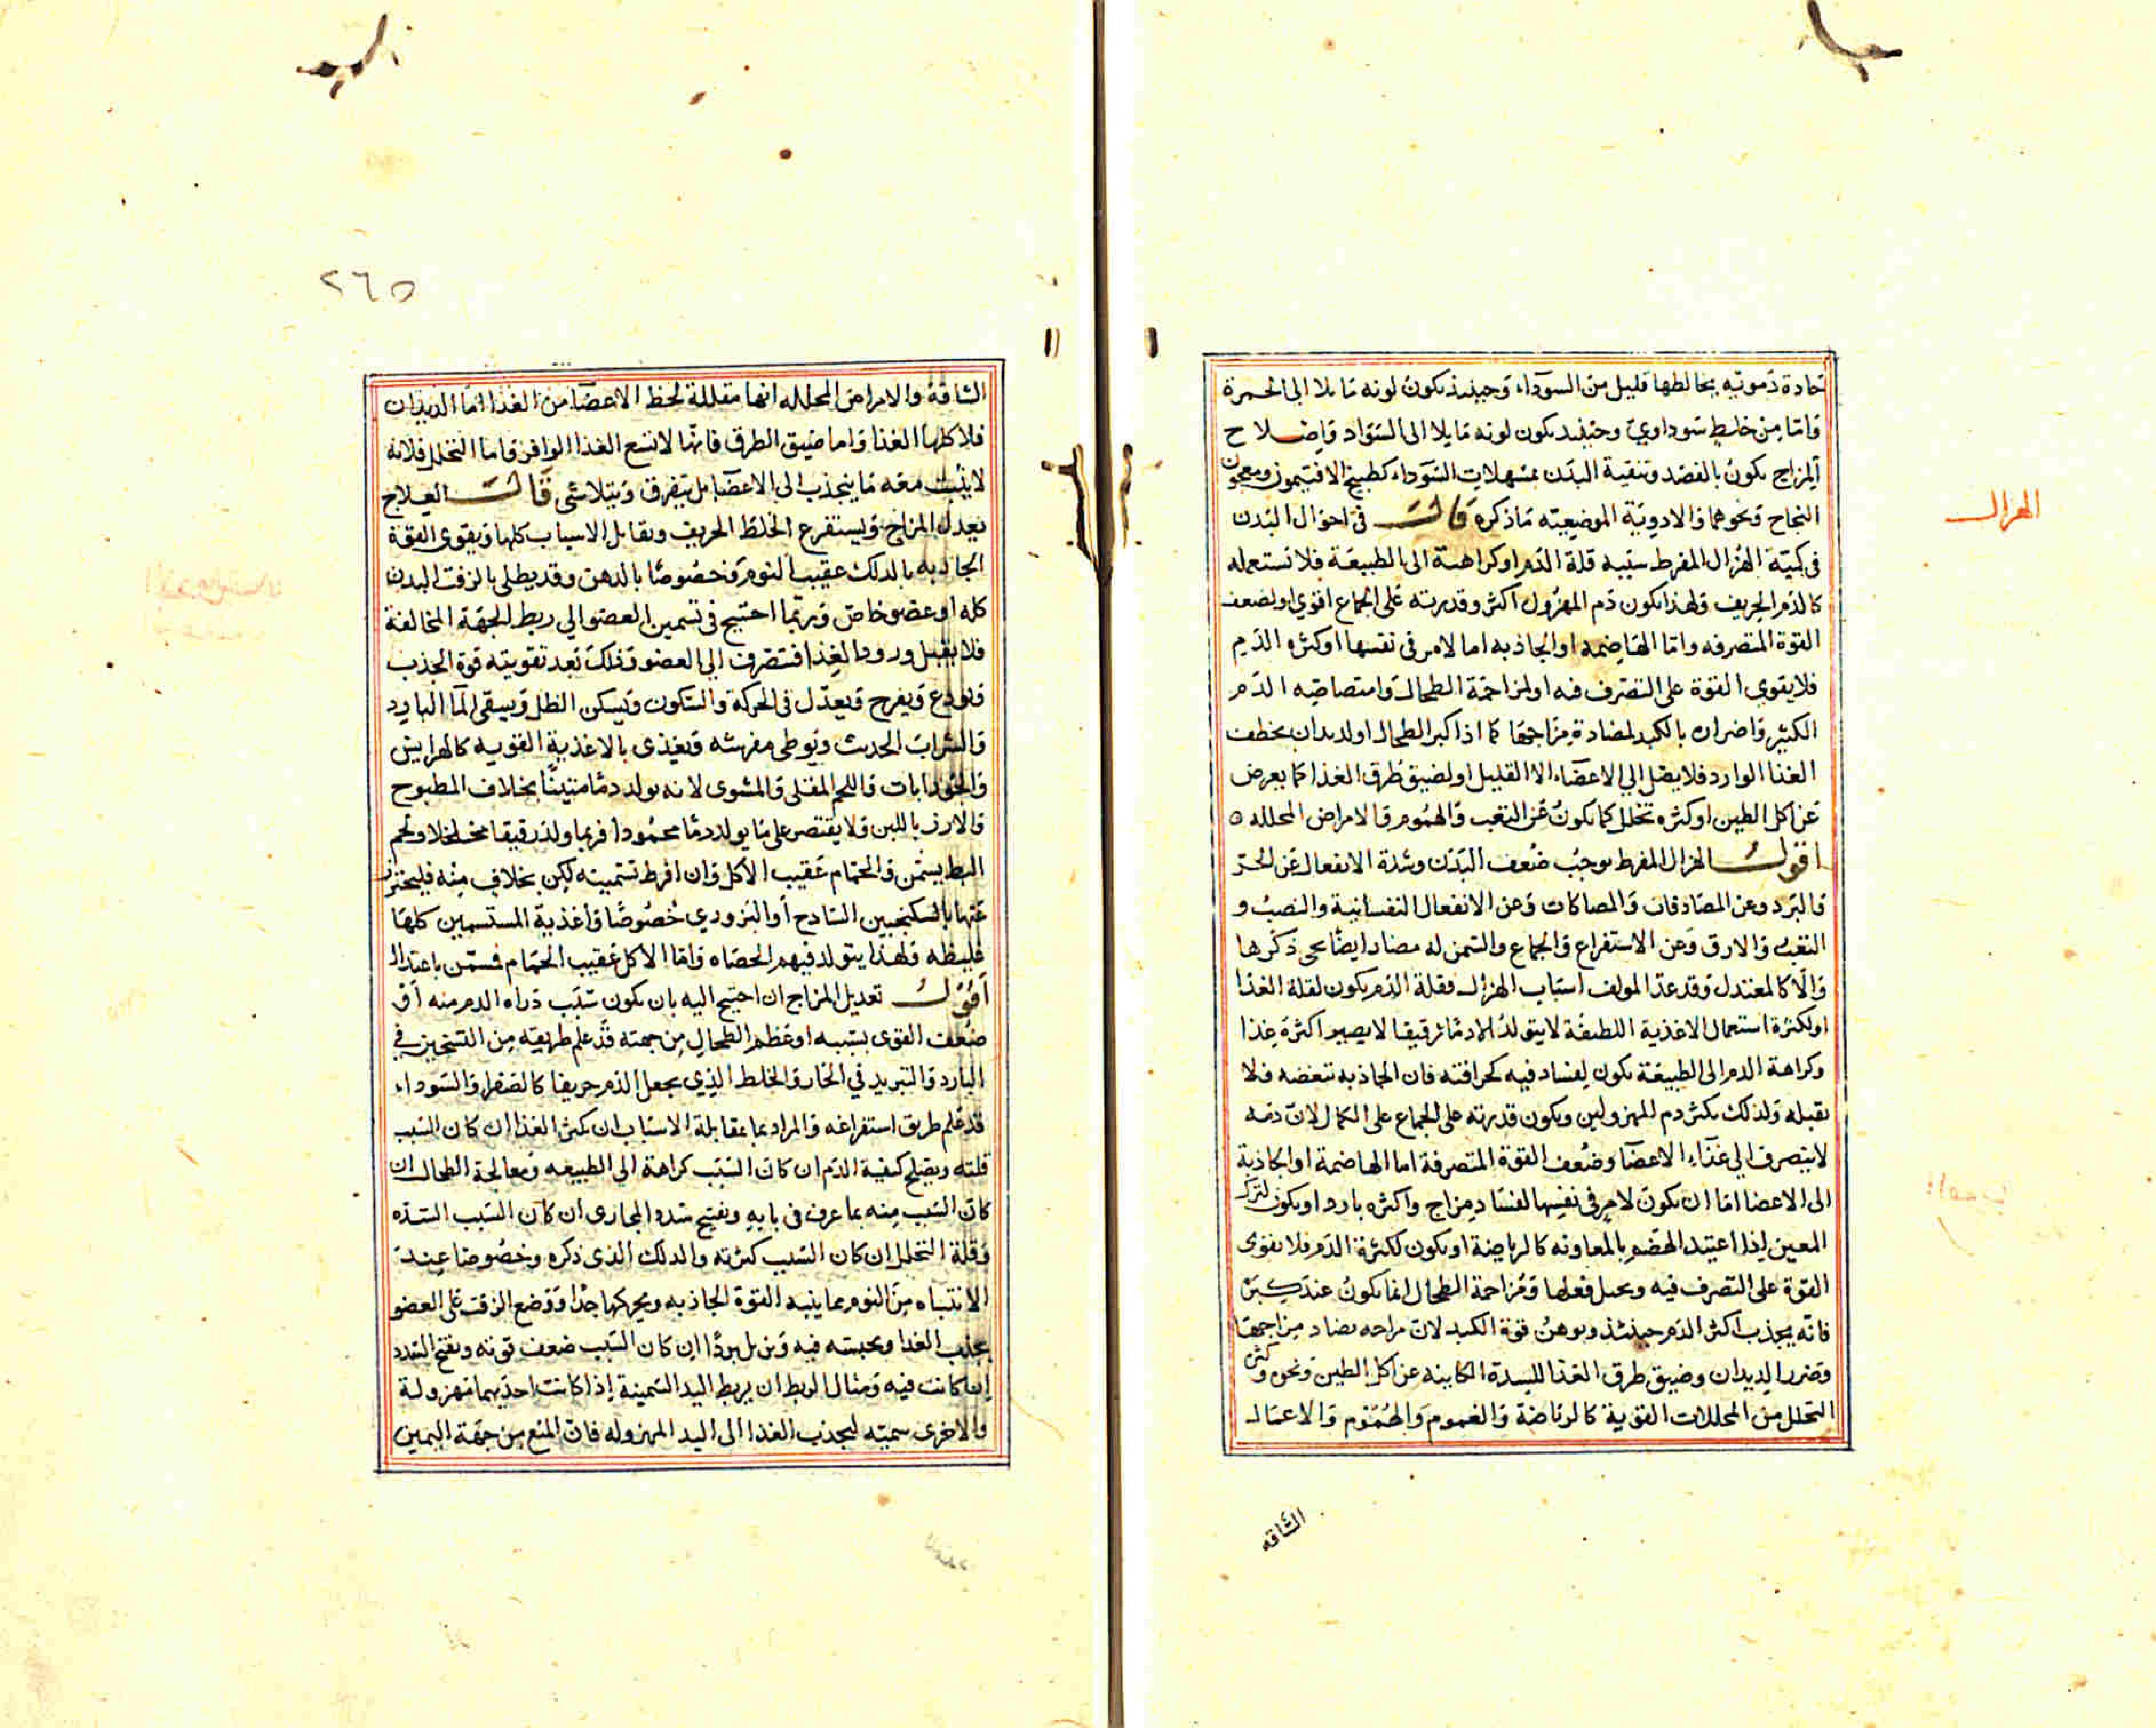 حادة دموية يخالطها قليل من السوداء وحينيذ يكون لونه مايلا الى الحمرة
واما من خلط سوداوي وحينيد يكون لونه مايلا الى السواد واصلاح
المزاج يكون بالفصد وتنقية البدن بمسهلات السوداء كطبيخ الافتيمون ومعجون
النجاح ونحوهما والادوية الموضعية ما ذكره قالـــ في احوال البدن
الهزال
في كمية الهزال المفرط سببه قلة الدم او كراهية الى الطبيعة فلا تستعمله
كالدم الحريف ولهذا يكون دم المهزول اكثر وقدرته على الجماع اقوي او لضعف
القوة المتصرفه واما الهاضمه او الجاذبه اما لامر في نفسها او كثره الدم
فلا يقوي القوة على التصرف فيه او لمزاحمة الطحال وامتصاصه الدم
الكثير واضراره بالكبد لمضادة مزاجها كما اذا كبر الطحال او لديدان يخطف
الغذا الوارد فلا يصل الى الاعضاء الا القليل او لضيق طرق الغذا كما يعرض
عن اكل الطين او كثره تحلل كما يكون عن التعب والهموم والامراض المحلله ٥
اقولـــ الهزال المفرط يوجب ضعف البدن وشدة الانفعال عن الحر
والبرد وعن المصادفات والمصاكات وعن الانفعال النفسانية والنصب و
التعب والارق وعن الاستفراغ والجماع والسمن له مضار ايضا يجى ذكرها
والا كالمعتدل وقد عد المولف اسباب الهزال فقلة الدم يكون لقلة الغذا
او لكثرة استعمال الاغذية اللطيفة لا يتولد الا دما رقيقا لا يصير اكثره غذا
وكراهة الدم الى الطبيعة يكون لفساد فيه كحرافته فان الجاذبه تبغضه فلا
تقبله ولذلك يكثر دم المهزولين ويكون قدرته على الجماع على الكمال لان دمه
لا يتصرف الى غذاء الاعضا وضعف القوة المتصرفة اما الهاضمة او الجاذبة
الى الاعضا اما ان يكون لامر في نفسها لفساد مزاج واكثره بارد او يكون لترك
المعين اذا اعتيد الهضم بالمعاونه كالرياضة او يكون لكثرة الدم فلا يقوى
القوة على التصرف فيه ويحيل فعلها ومزاحمة الطحال انما يكون عند كبره
فانه يجذب اكثر الدم حينئذ ويوهن قوة الكبد لان مزاجه يضاد مزاجها
وضرر الديدان وضيق طرق الغذا للسدة الكاينه عن اكل الطين ونحوه وكثره
التحلل من المحللات القوية كالرياضة والغموم والهموم والاعمال
الشاقه
٢٦٥
الشاقة والامراض المحلله انها مقللة لحظ الاعضا من الغذا اما الديدان
فلاكلها الغذا واما ضيق الطرق فانها لا تسع الغذا الوافر واما التحلل فلانه
لا يثبت معه ما ينجذب الى الاعضا بل يتفرق ويتلاشى قالـــ العلاج
يعدل المزاج ويستفرغ الخلط الحريف ويقابل الاسباب كلها ويقوى القوة
الجاذبه بالدلك عقيب النوم وخصوصا بالدهن وقد يطلى بالزفت البدن
كله او عضو خاص وربما احتيج في تسمين العضو الي ربط الجهة المخالفة
فلا يقبل ورود الغذا فتصرف الى العضو وذلك بعد تقويته قوة الجذب
ويودع ويفرح ويعدل في الحركة والسكون ويسكن الظل ويسقى الما البارد
والشراب الحديث ويوطى مفرشه ويغذى بالاغذية القويه كالهرايس
والجوذابات واللحم المقلى والمشوى لانه يولد دما متينا بخلاف المطبوح
والارز باللبن ولا يقتصر على ما يولد دما محمودا فربما ولد رقيقا متخلخلا ولحم
البط يسمن والحمام عقيب الاكل وان افرط تسمينه لكن يخلاف منه فليحترز
عنها بالسكنجبين الساذج او البزوري خصوصا واغذية المستسمنين كلها
غليظه ولهذا يتولد فيهم الحصاه واما الاكل عقيب الحمام فسمن باعتدال
اقولـــ تعديل المزاج ان احتيج اليه بان يكون سبب رداه الدم منه او
ضعف القوى بسببه او عظم الطحال من جهته قد علم طريقه من التسخين في
البارد والتبريد في الحار والخلط الذي يجعل الدم حريفا كالصفرا والسوداء
قد علم طريق استفراغه والمراد بما بمقابلة الاسباب ان يكثر الغذا ان كان السبب
قلته ويصلح كيفية الدم ان كان السبب كراهة الي الطبيعه ومعالجة الطحال ان
كان السبب منه بما عرف في بابه وتفتيح سدد المجارى ان كان السبب السده
وقلة التحلل ان كان السبب كثرته والدلك الذى ذكره وخصوصا عند
الانتباه من النوم مما ينبه القوة الجاذبه ويحركها جدا ووضع الزفت على العضو
يجذب الغذا ويحبسه فيه ويزيل بردا ان كان السبب ضعف قوته ويفتح السدد
ان كانت فيه ومثال الربط ان يربط اليد السمينة اذا كانت احديهما مهزولة
والاخرى سمينه ليجذب الغذا الى اليد المهزوله فان المنع من جهة اليمين